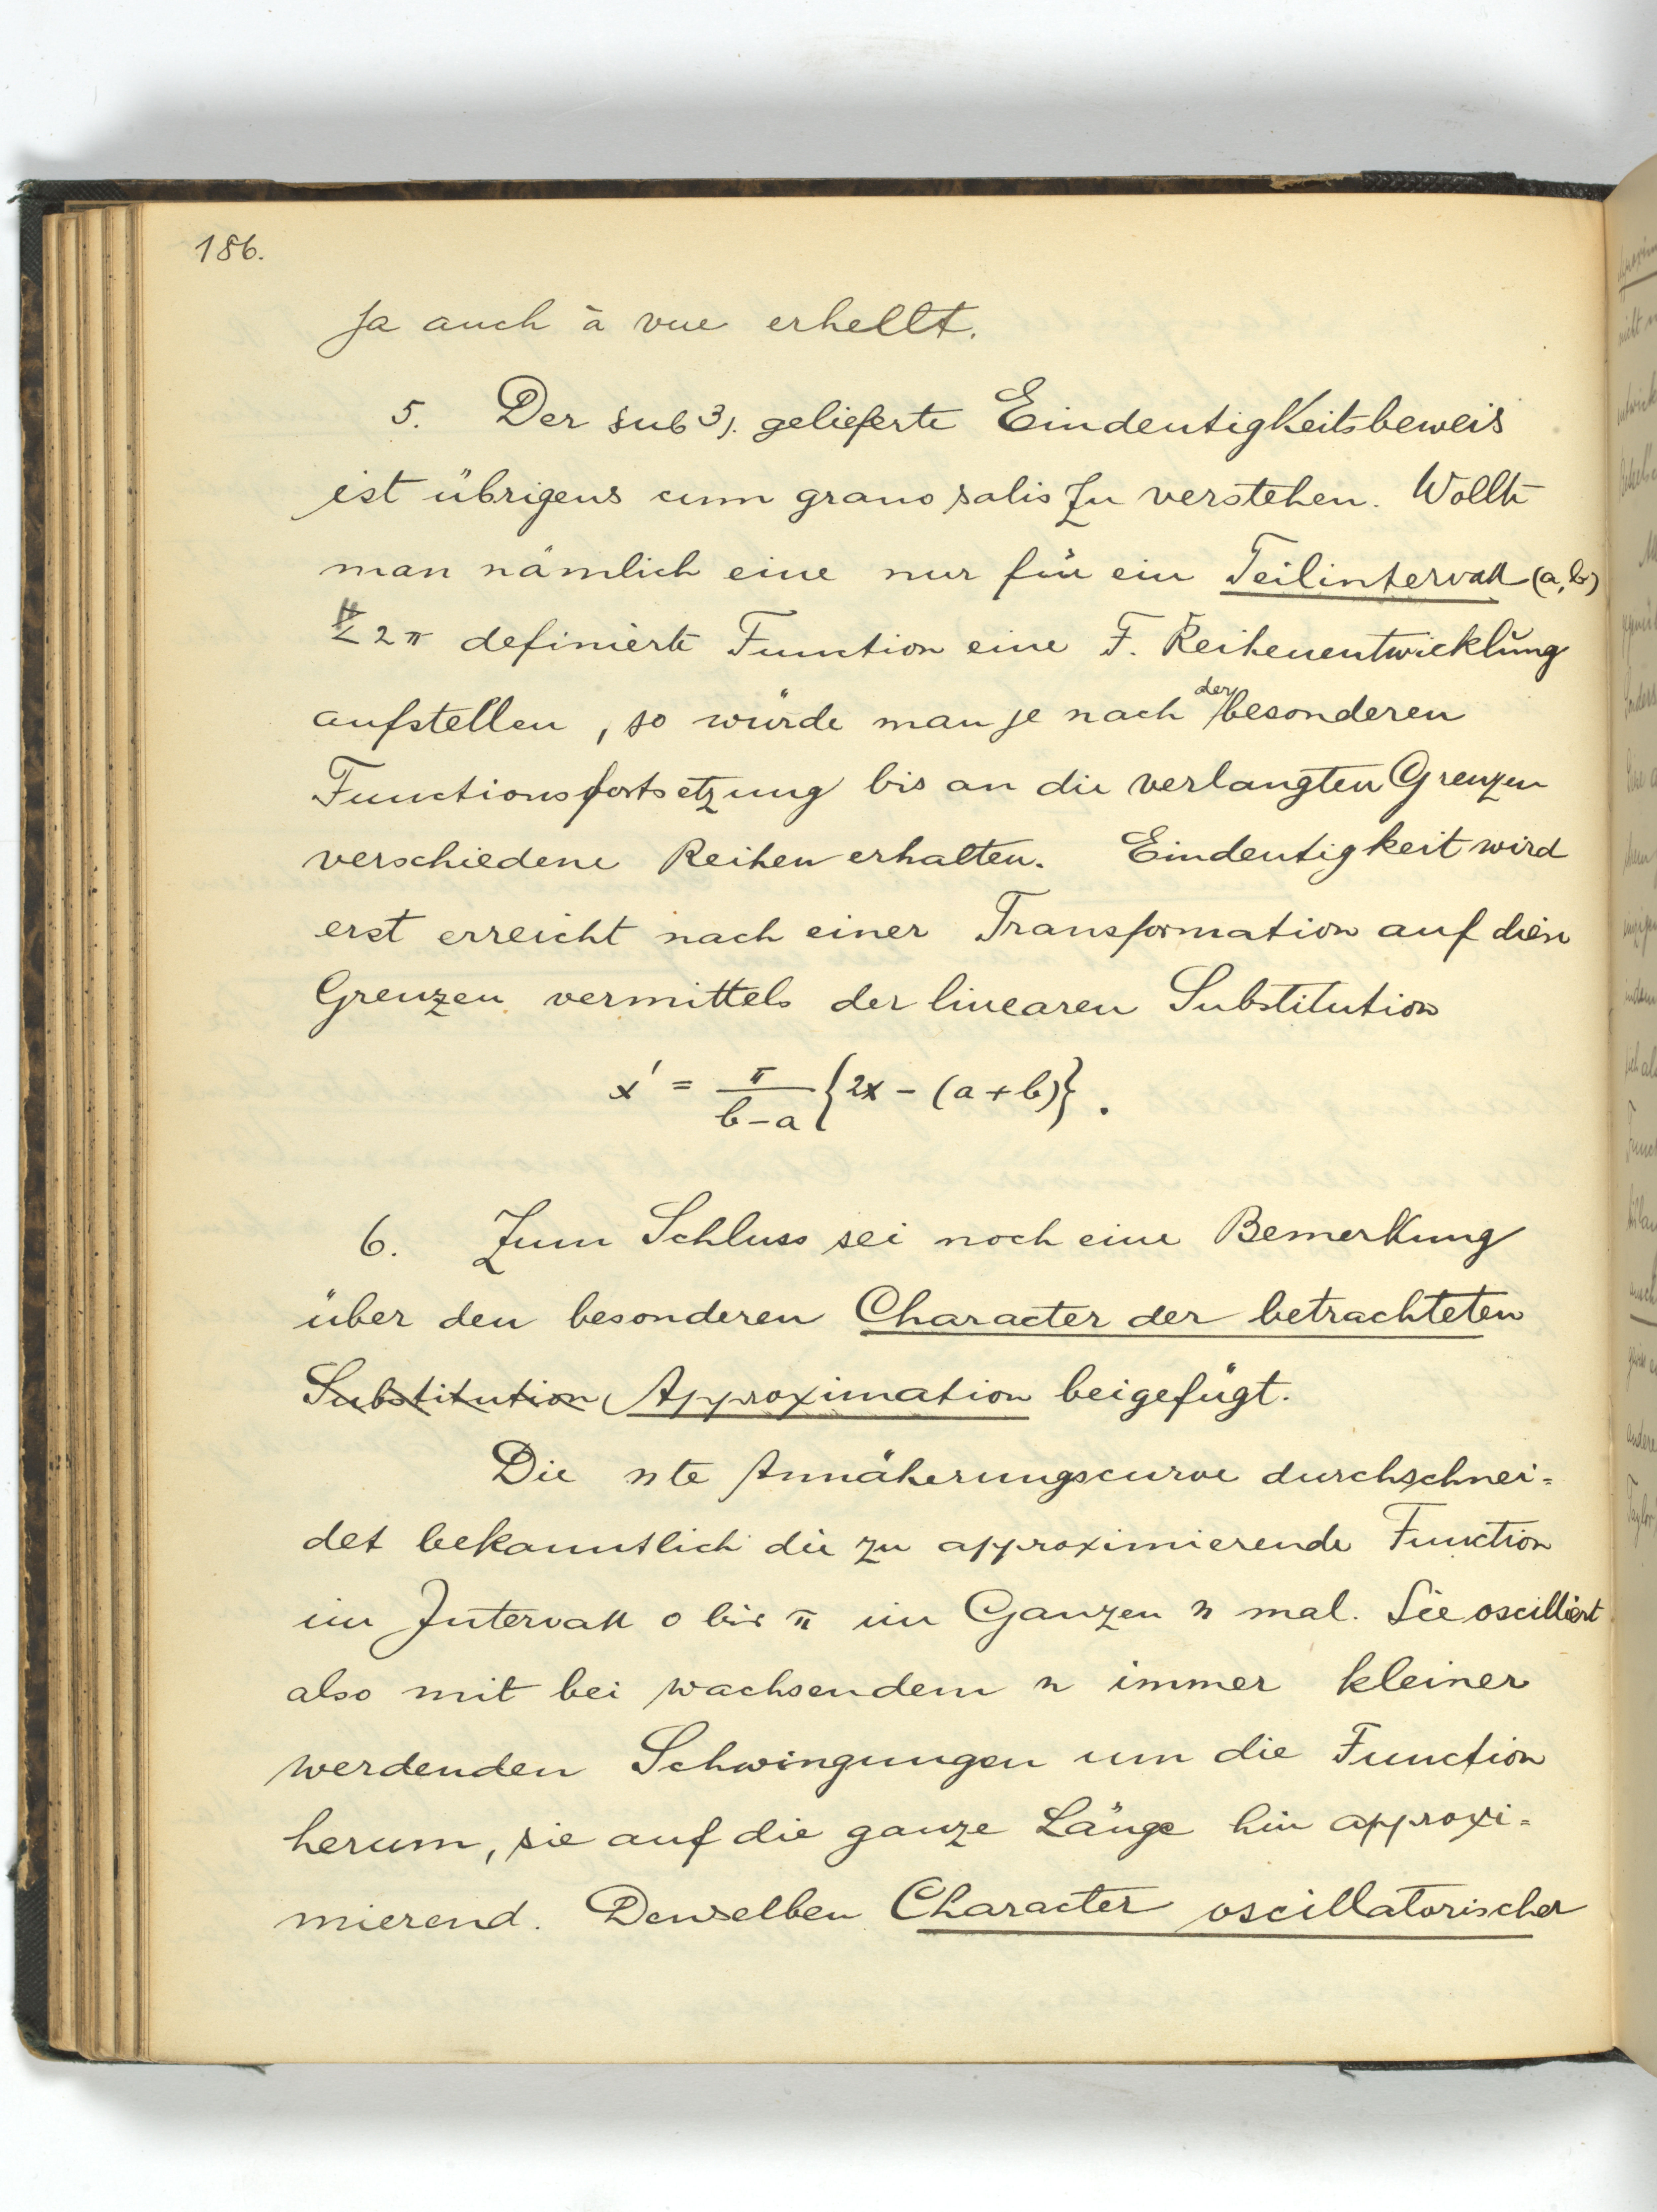 186.
ja auch à vue erhellt.
5. Der sub 3). gelieferte Eindeutigkeitsbeweis
ist übrigens cum grano salis zu verstehen. Wollte
man nämlich eine nur für ein Teilintervall (a, b)
< 2π definierte Function eine F. Reihenentwicklung
aufstellen, so würde man je nach der besonderen
Functionsfortsetzung bis an die verlangten Grenzen
verschiedene Reihen erhalten. Eindeutigkeit wird
erst erreicht nach einer Transformation auf diese
Grenzen vermittels der linearen Substitution
x' = π/(b-a) {2x - (a+b)}.
6. Zum Schluss sei noch eine Bemerkung
über den besonderen Character der betrachteten
Substitution Approximation beigefügt.
Die nte Annäherungscurve durchschnei=
det bekanntlich die zu approximierende Function
im Intervall 0 bis π im Ganzen n mal. Sie oscilliert
also mit bei wachsendem n immer kleiner
werdenden Schwingungen um die Function
herum, sie auf die ganze Länge hin approxi=
mierend. Denselben Character oscillatorischer